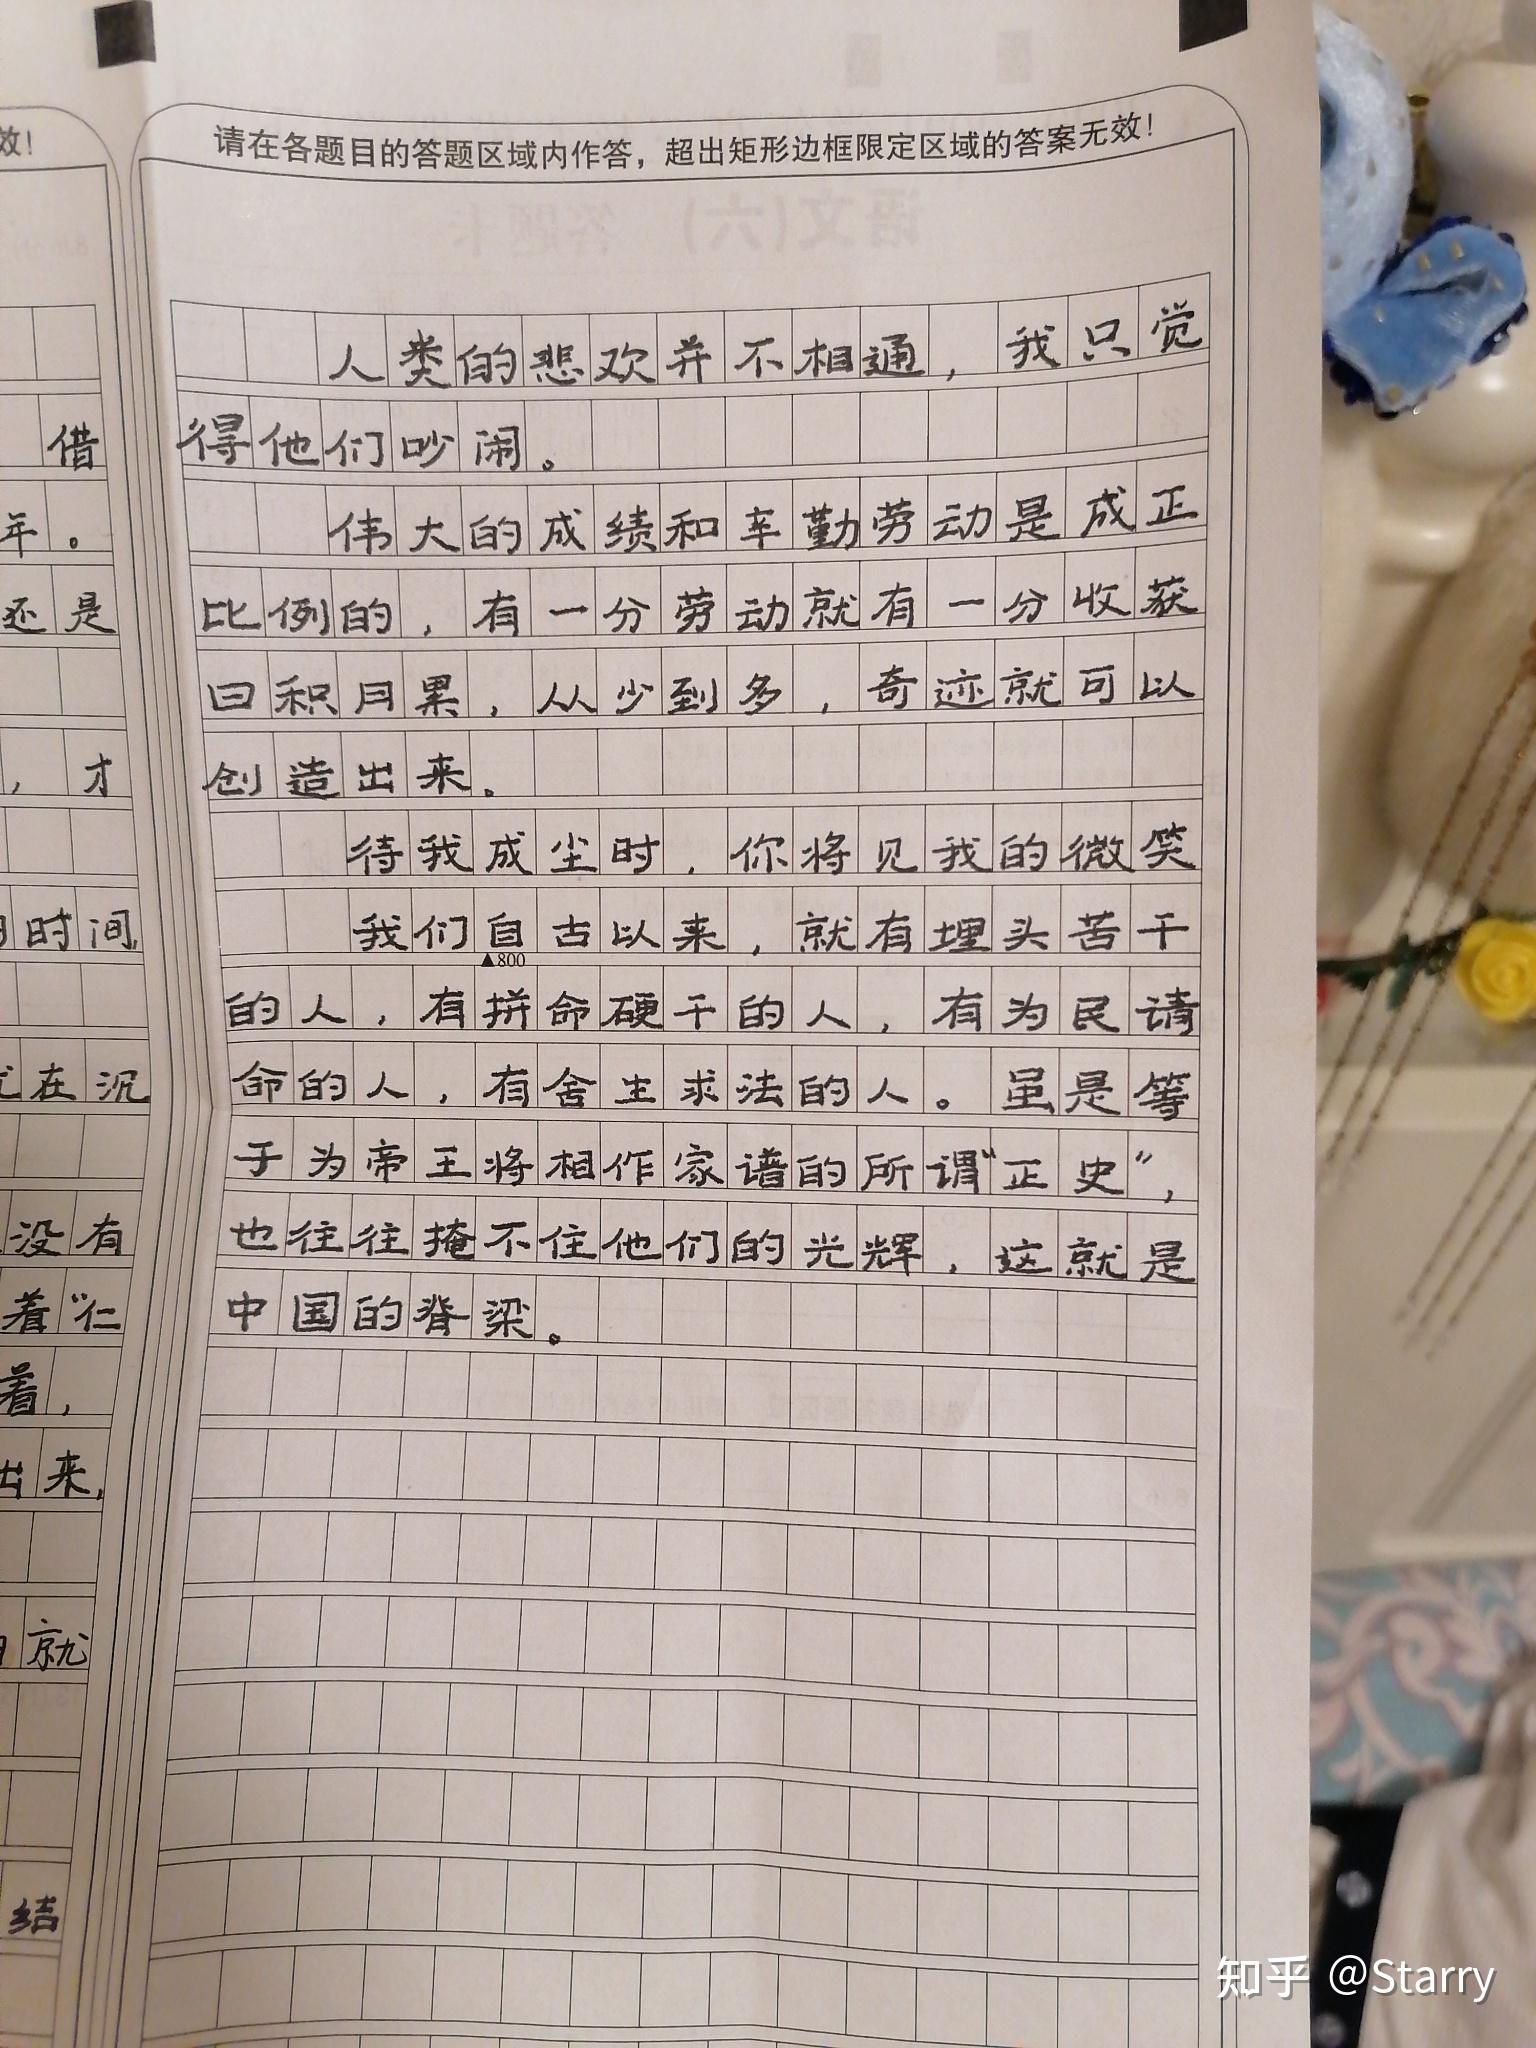 效！
借
年。
还是
，才
时间，
在沉
没有
着“仁
着，
出来，
就
结
请在各题目的答题区域内作答，超出矩形边框限定区域的答案无效！
语文(六) 答题卡
人类的悲欢并不相通，我只觉
得他们吵闹。
伟大的成绩和辛勤劳动是成正
比例的，有一分劳动就有一分收获
日积月累，从少到多，奇迹就可以
创造出来。
待我成尘时，你将见我的微笑
我们自古以来，就有埋头苦干
▲800
的人，有拼命硬干的人，有为民请
命的人，有舍生求法的人。虽是等
于为帝王将相作家谱的所谓“正史”，
也往往掩不住他们的光辉，这就是
中国的脊梁。
知乎 @Starry